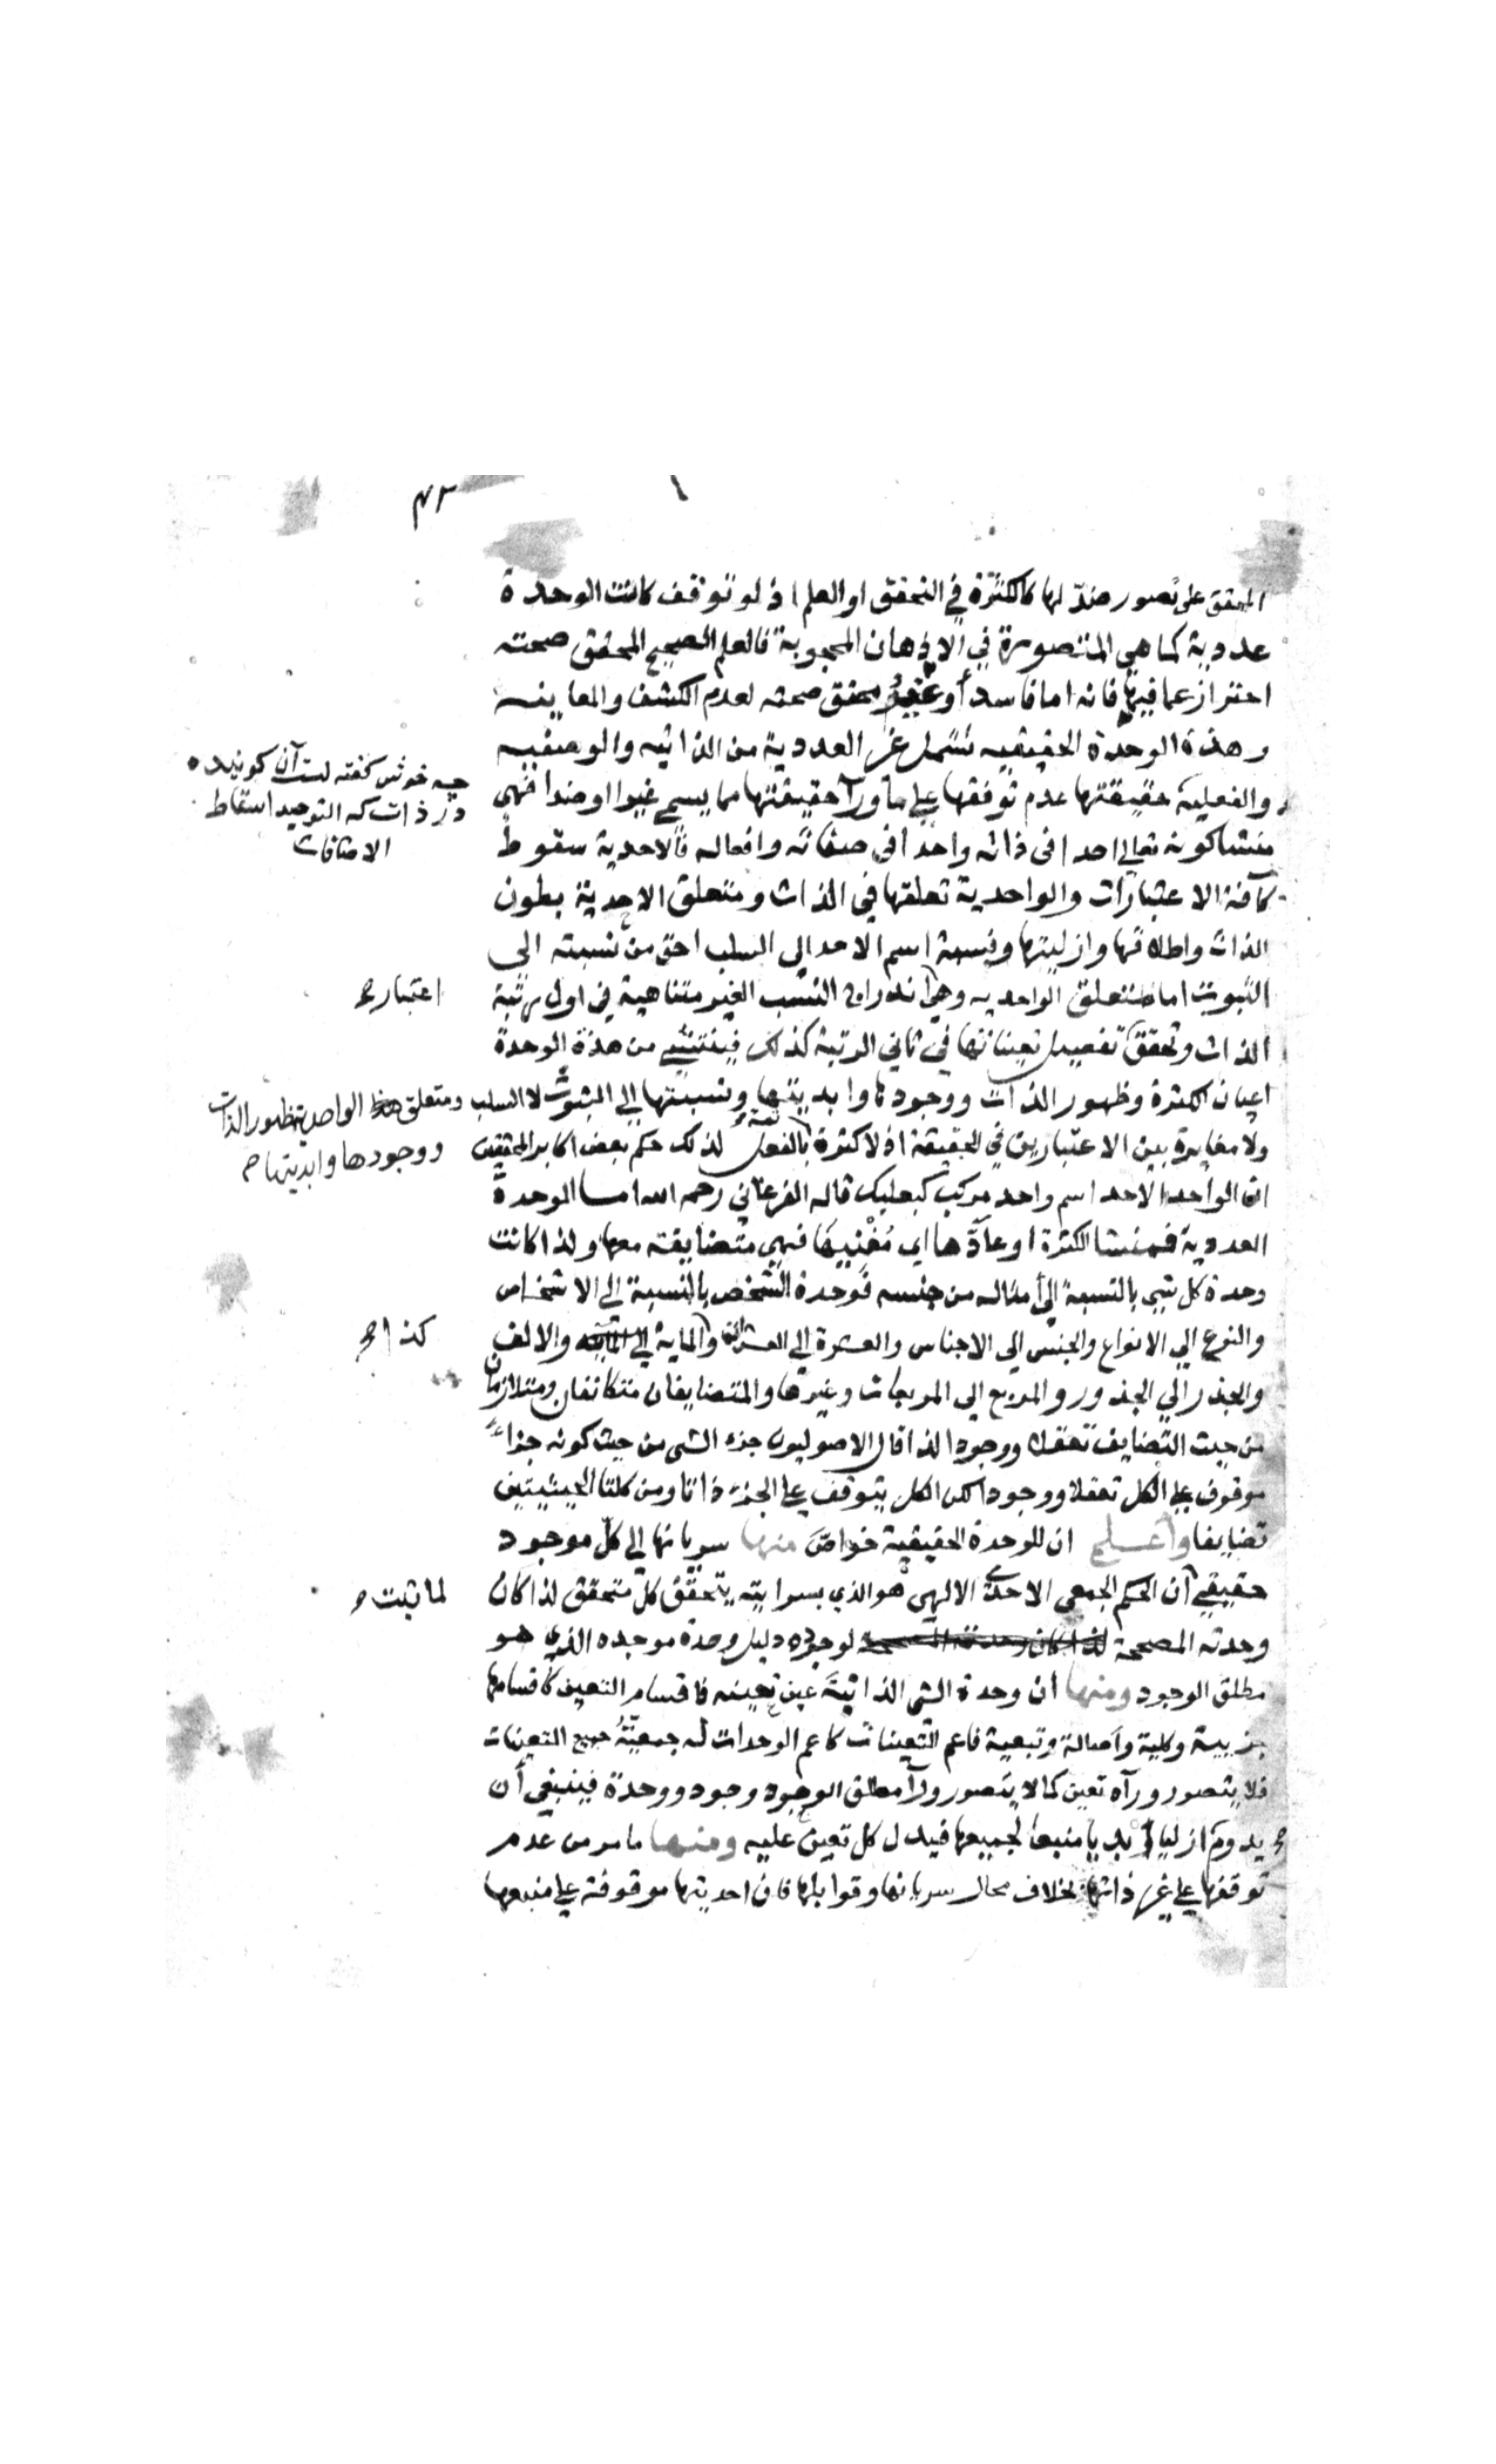 ٤٢
المحقق على تصور ضدّ لها كالكثرة في التحقق او العلم اذ لو توقف كانت الوحدة
عددية كما هي المتصورة في الاذهان المحجوبة فالعلم الصحيح المحقق صحته
احتراز عما فيها فانه اما فاسد أو غير محقق صحته لعدم الكشف والمعاينة
وهذه الوحدة الحقيقيه تشمل غير العددية من الذاتيه والوصفيه
والفعلية حقيقتها عدم توقفها على ما ورآ حقيقتها مما يسمى غيرا او ضدا فهي
منشا كونه تعالى احدا في ذاته واحدا في صفاته وافعاله فالاحدية سقوط
كافة الاعتبارات والواحدية تعلقها في الذات ومتعلق الاحدية بطون
الذات واطلاقها وازليتها ونسبة اسم الاحد الى السلب احق من نسبته الى
الثبوت اما متعلق الواحديه وهي اندراج النسب الغير متناهية في اول رتبة
الذات وتحقق تفصيل تعيناتها في ثاني الرتبة كذلك فينتشي من هذه الوحدة
اعيان الكثرة وظهور الذات ووجودها وابديتها ونسبتها الى الثبوت لا السلب
ولا مغايرة بين الاعتبارين في الحقيقة اذ لا كثرة بالفعل ثمة لذلك حكم بعض اكابر المحققين
ان الواحد الاحد اسم واحد مركب كبعلبك قاله الفرغاني رحمه الله اما الوحدة
العددية فمنشا الكثرة او عادّها اي مُفْنيها فهي متضايفته معها ولذا كانت
وحدة كل شي بالنسبة الى أمثاله من جنسه فوحدة الشخص بالنسبة الى الاشخاص
والنوع الى الانواع والجنس الى الاجناس والعشرة الى العشرات والماية الى والالف
والجذر الى الجذور والمربع الى المربعات وغيرها والمتضايفان متكافئان ومتلازمان
من حيث التضايف تعقلا ووجودا لذا قال الاصوليون جزء الشى من حيث كونه جزاء
موقوف على الكل تعقلا ووجودا لكن الكل يتوقف على الجزء ذاتا ومن كلتا الحيثيتين
تضايفا واعلم ان للوحدة الحقيقية خواصّ منها سريانها الى كلّ موجود
حقيقي أن الحكم الجمعي الاحدى الالهي هو الذي بسرايته يتحقق كل متحقق لذا كان
وحدته المصححة لذا كان وحدته المصححة لوجوده دليل وحدة موجده الذي هو
مطلق الوجود ومنها أن وحدة الشي الذاتية عين تعينه فاقسام التعين كاقسامها
جزيية وكلية وأصالة وتبعية فاعم التعينات كاعم الوحدات له جمعيّة جميع التعينات
فلا يتصور ورآه تعين كما لا يتصور ورآ مطلق الوجود وجود ووحدة فينبغي أن
يدوم ازليا ابديا منبعا لجميعها فيدل كل تعين عليه ومنها ما مر من عدم
توقفها على غير ذاتها بخلاف محال سريانها وقوابلها فان احديتها موقوفة على منبعها
چه خوش گفته است آن كوينده
در ذات كه التوحيد اسقاط
الاضافات
اعتبار
ومتعلق الواحدية ظهور الذات
ووجودها وابديتها
كذا
لما ثبت